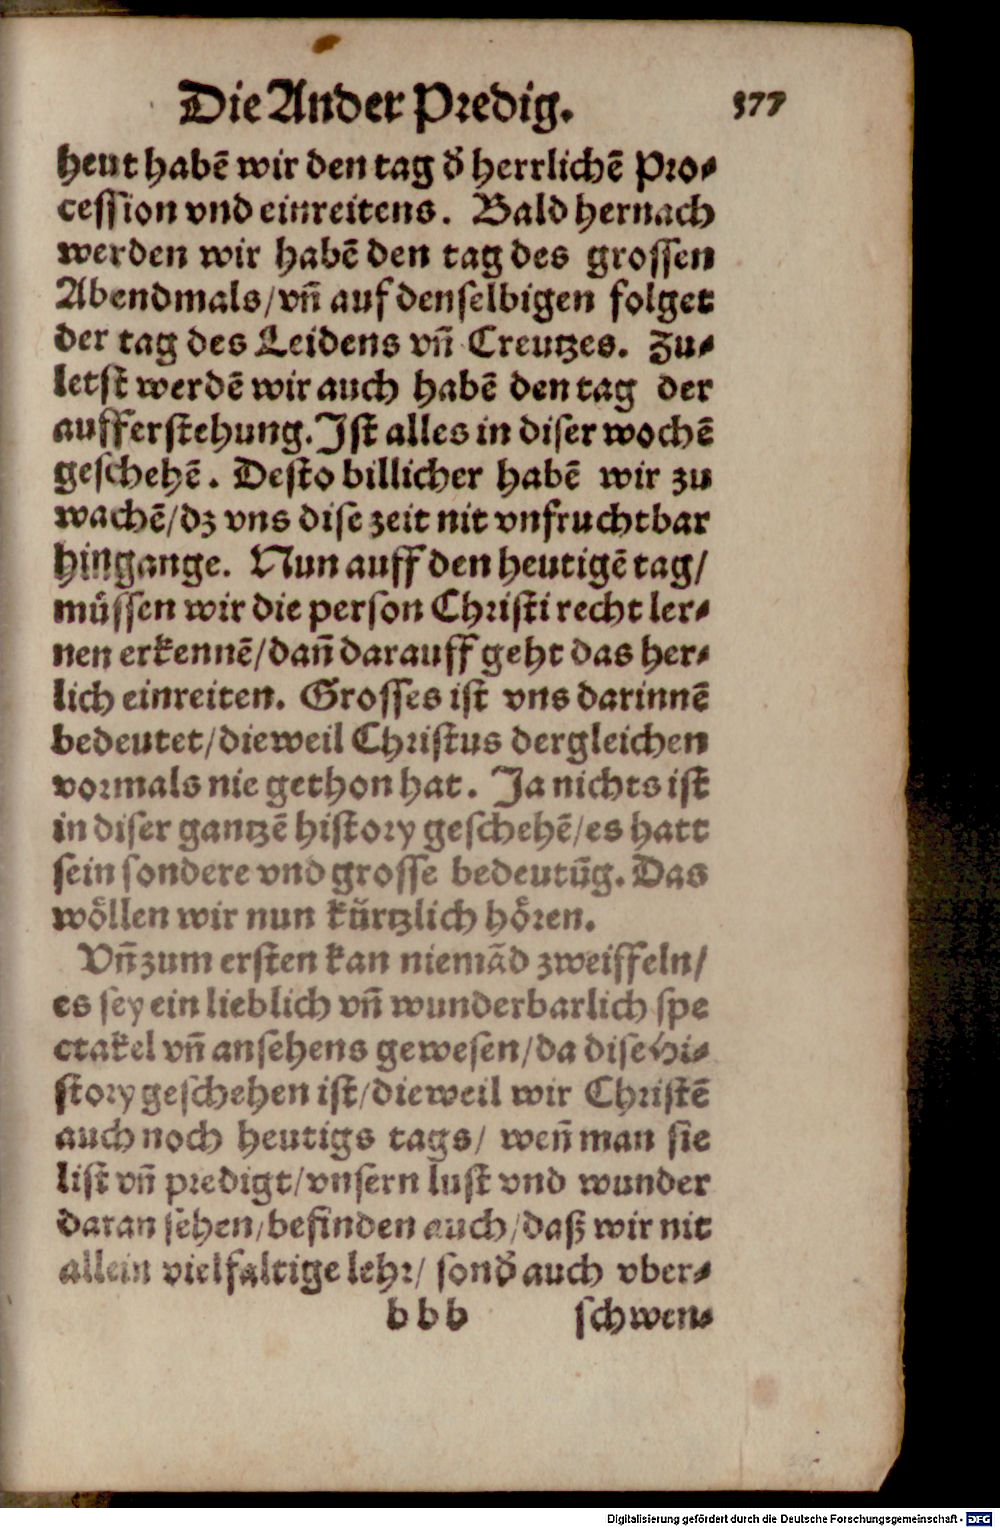 Die Ander Predig. 377
heut habē wir den tag d̕ herrlichē Pro⸗
cession vnd einreitens. Bald hernach
werden wir habē den tag des grossen
Abendmals/ vn̄ auf denselbigen folget
der tag des Leidens vn̄ Creutzes. Zu⸗
letst werdē wir auch habē den tag der
aufferstehung. Ist alles in diser wochē
geschehē. Desto billicher habē wir zu
wachē/ dz vns dise zeit nit vnfruchtbar
hingange. Nun auff den heutigē tag/
müssen wir die person Christi recht ler⸗
nen erkennē/ dan̄ darauff geht das her⸗
lich einreiten. Grosses ist vns darinnē
bedeutet/ dieweil Christus dergleichen
vormals nie gethon hat. Ja nichts ist
in diser gantzē history geschehē/ es hatt
sein sondere vnd grosse bedeutūg. Das
wöllen wir nun kürtzlich hören.
Vn̄ zum ersten kan niemād zweiffeln/
es sey ein lieblich vn̄ wunderbarlich spe
ctakel vn̄ ansehens gewesen/ da dise Hi⸗
story geschehen ist/ dieweil wir Christē
auch noch heutigs tags/ wen̄ man sie
list vn̄ predigt/ vnsern lust vnd wunder
daran sehen/ befinden auch/ daß wir nit
allein vielfaltige lehr/ sond̕ auch vber⸗
b b b schwen⸗
Digitalisierung gefördert durch die Deutsche Forschungsgemeinschaft - DFG